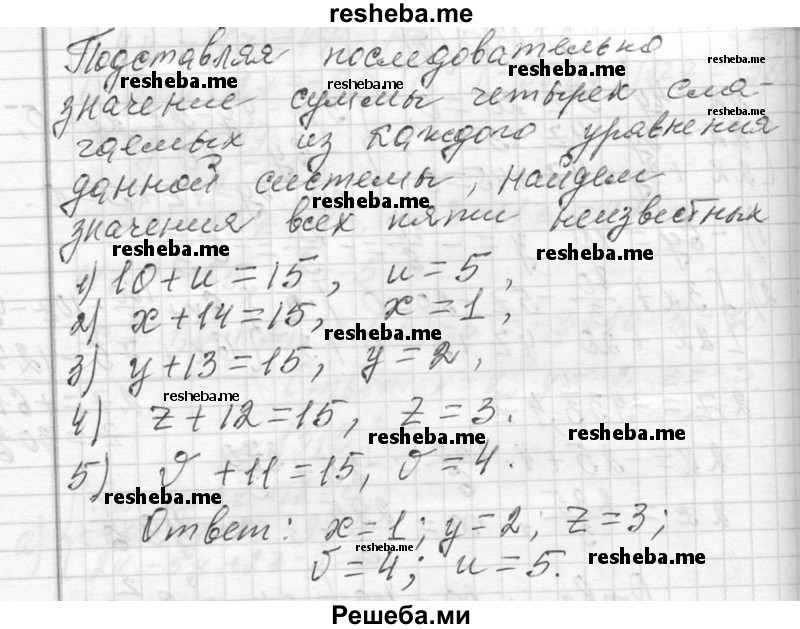 resheba.me
Подставляя последовательно
resheba.me
resheba.me
resheba.me
resheba.me
значение суммы четырех сла-
resheba.me
гаемых из каждого уравнения
данной системы, найдем
resheba.me
значения всех пяти неизвестных
resheba.me
resheba.me
1) 10+u=15, u=5,
2) x+14=15, x=1,
resheba.me
3) y+13=15, y=2,
resheba.me
4) z+12=15, z=3.
resheba.me
resheba.me
5) v+11=15, v=4.
resheba.me
Ответ: x=1; y=2; z=3;
resheba.me
resheba.me
v=4; u=5.
Решеба.ми